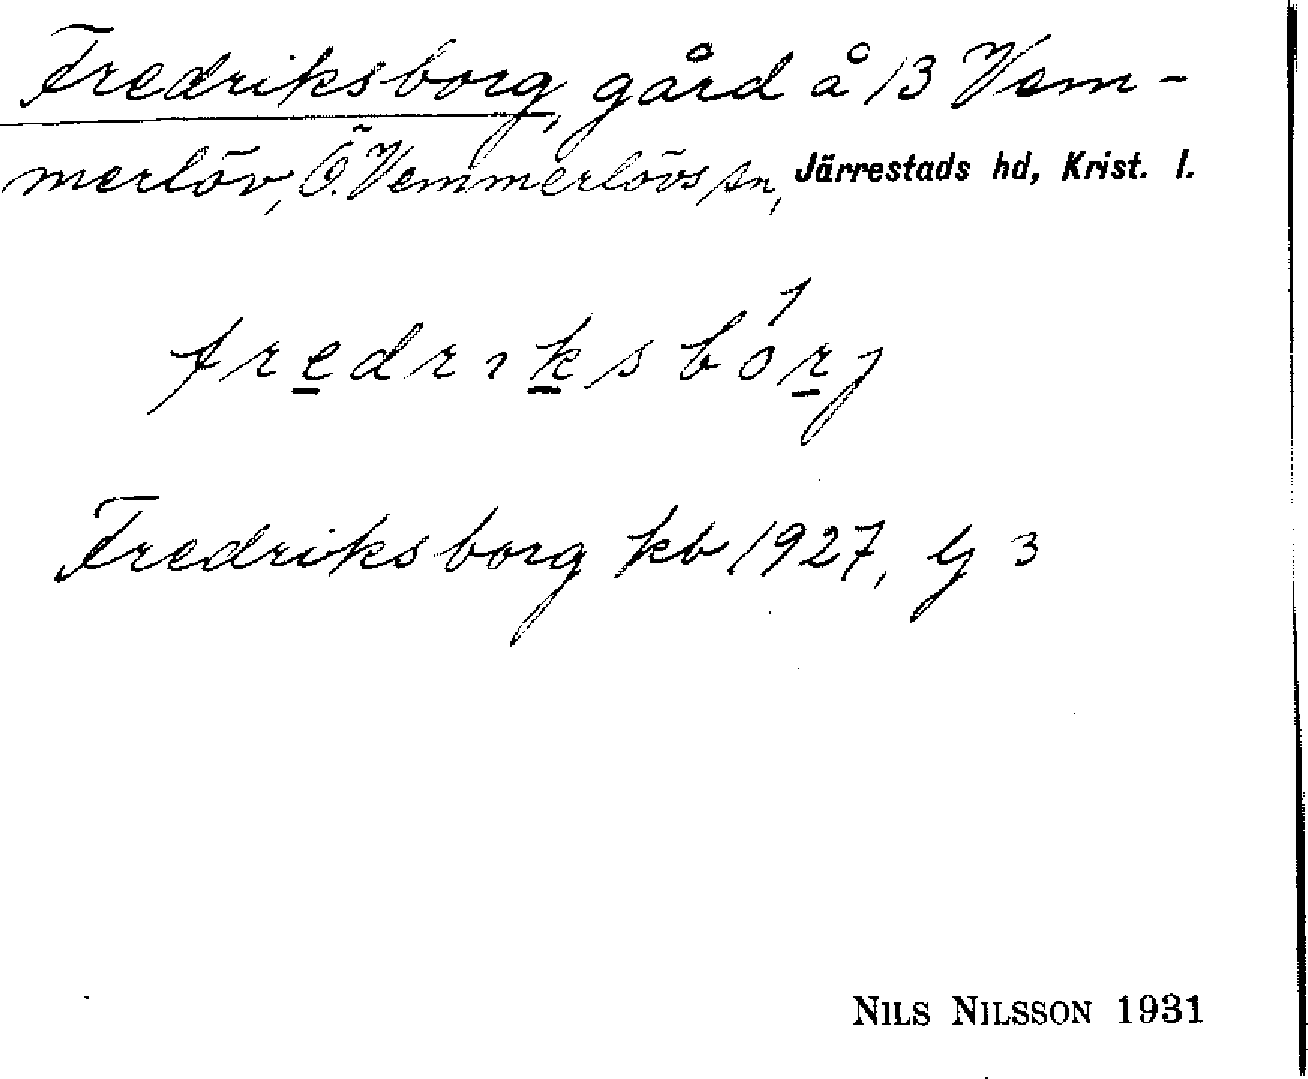 Fredriksborg, gård å 13 Vem-
merlöv, Ö. Vemmerlövs sn, Järrestads hd, Krist. l.
fredriksbórj
Fredriksborg kb 1927, lj 3
NILS NILSSON 1931